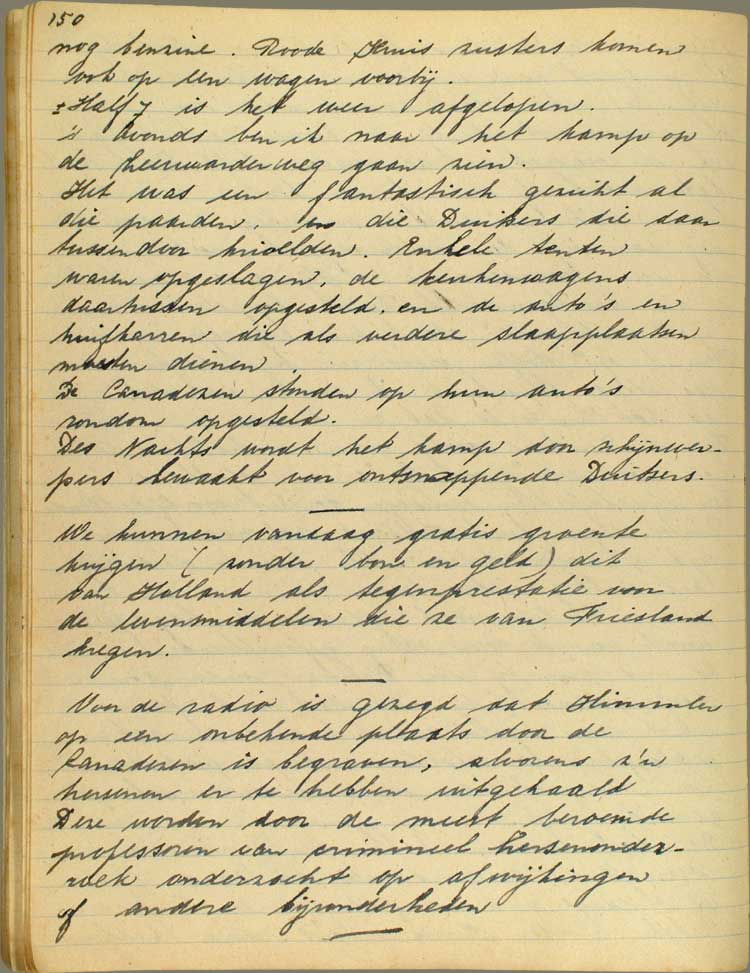 150
nog benzine. Roode Kruis zusters komen
ook op een wagen voorbij.
± Half 7 is het weer afgelopen.
's Avonds ben ik naar het kamp op
de Leeuwarderweg gaan zien.
Het was een fantastisch gezicht al
die paarden, en die Duitsers die daar
tussendoor krioelden. Enkele tenten
waren opgeslagen, de keukenwagens
daartussen opgesteld. en de auto's en
huifkarren die als verdere slaapplaatsen
moesten dienen.
De Canadezen stonden op hun auto's
rondom opgesteld.
Des Nachts wordt het kamp door schijnwer-
pers bewaakt voor ontsnappende Duitsers.
We kunnen vandaag gratis groente
krijgen (zonder bon en geld) dit
van Holland als tegenprestatie voor
de levensmiddelen die ze van Friesland
kregen.
Voor de radio is gezegd dat Himmler
op een onbekende plaats door de
Canadezen is begraven, alvorens z'n
hersenen er te hebben uitgehaald
Deze worden door de meest beroemde
professoren van crimineel hersenonder-
zoek onderzocht op afwijkingen
of andere bijzonderheden